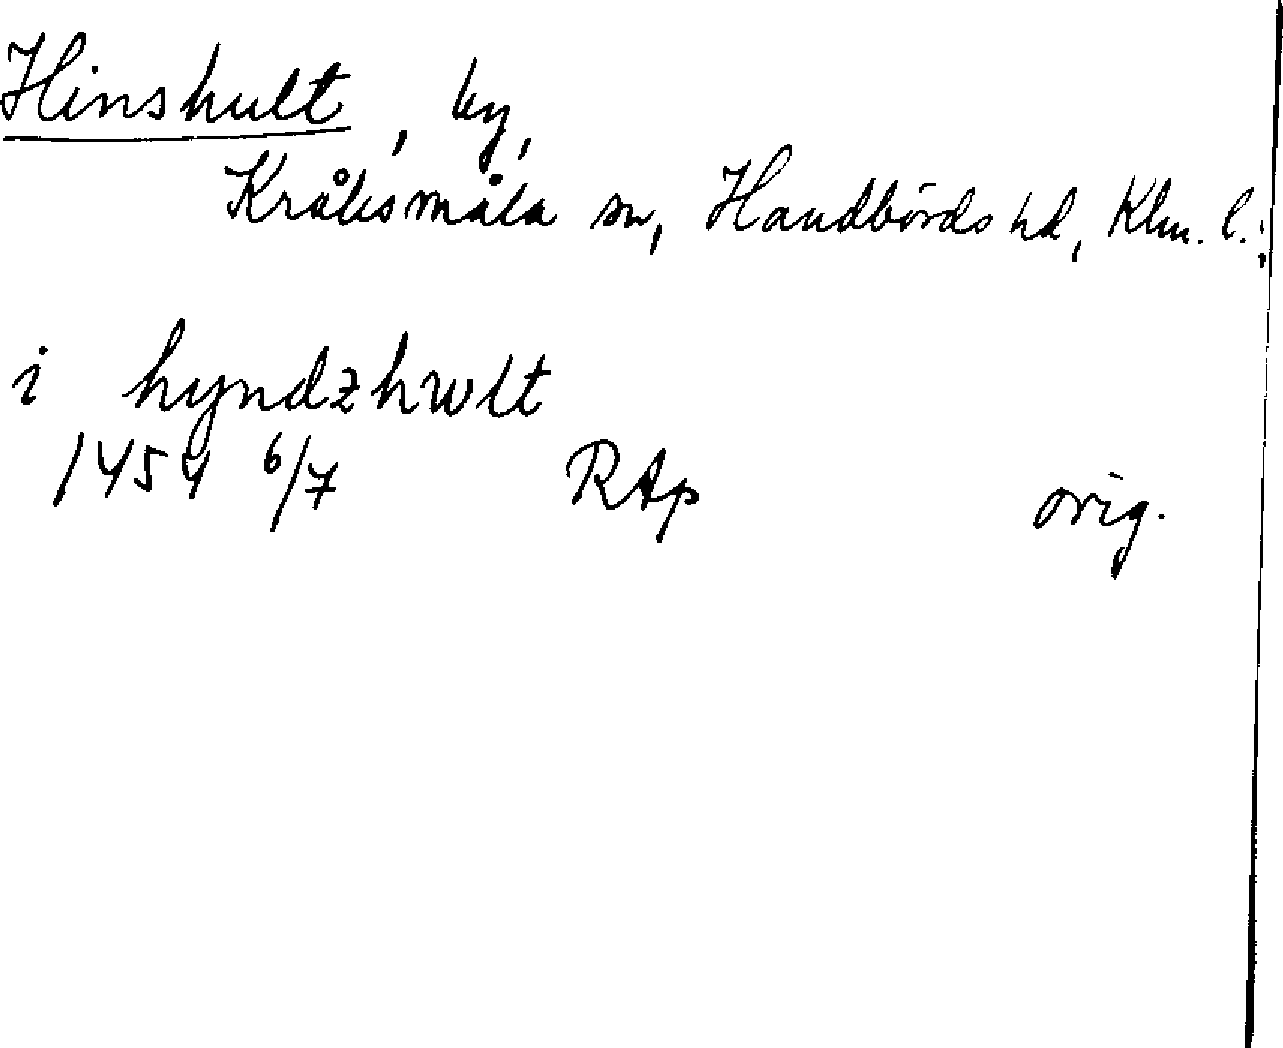 Hinshult, by,
Kråksmåla sn, Handbörds hd, Klm. l.;
i hyndzhwlt
1454 6/7 RAp orig.